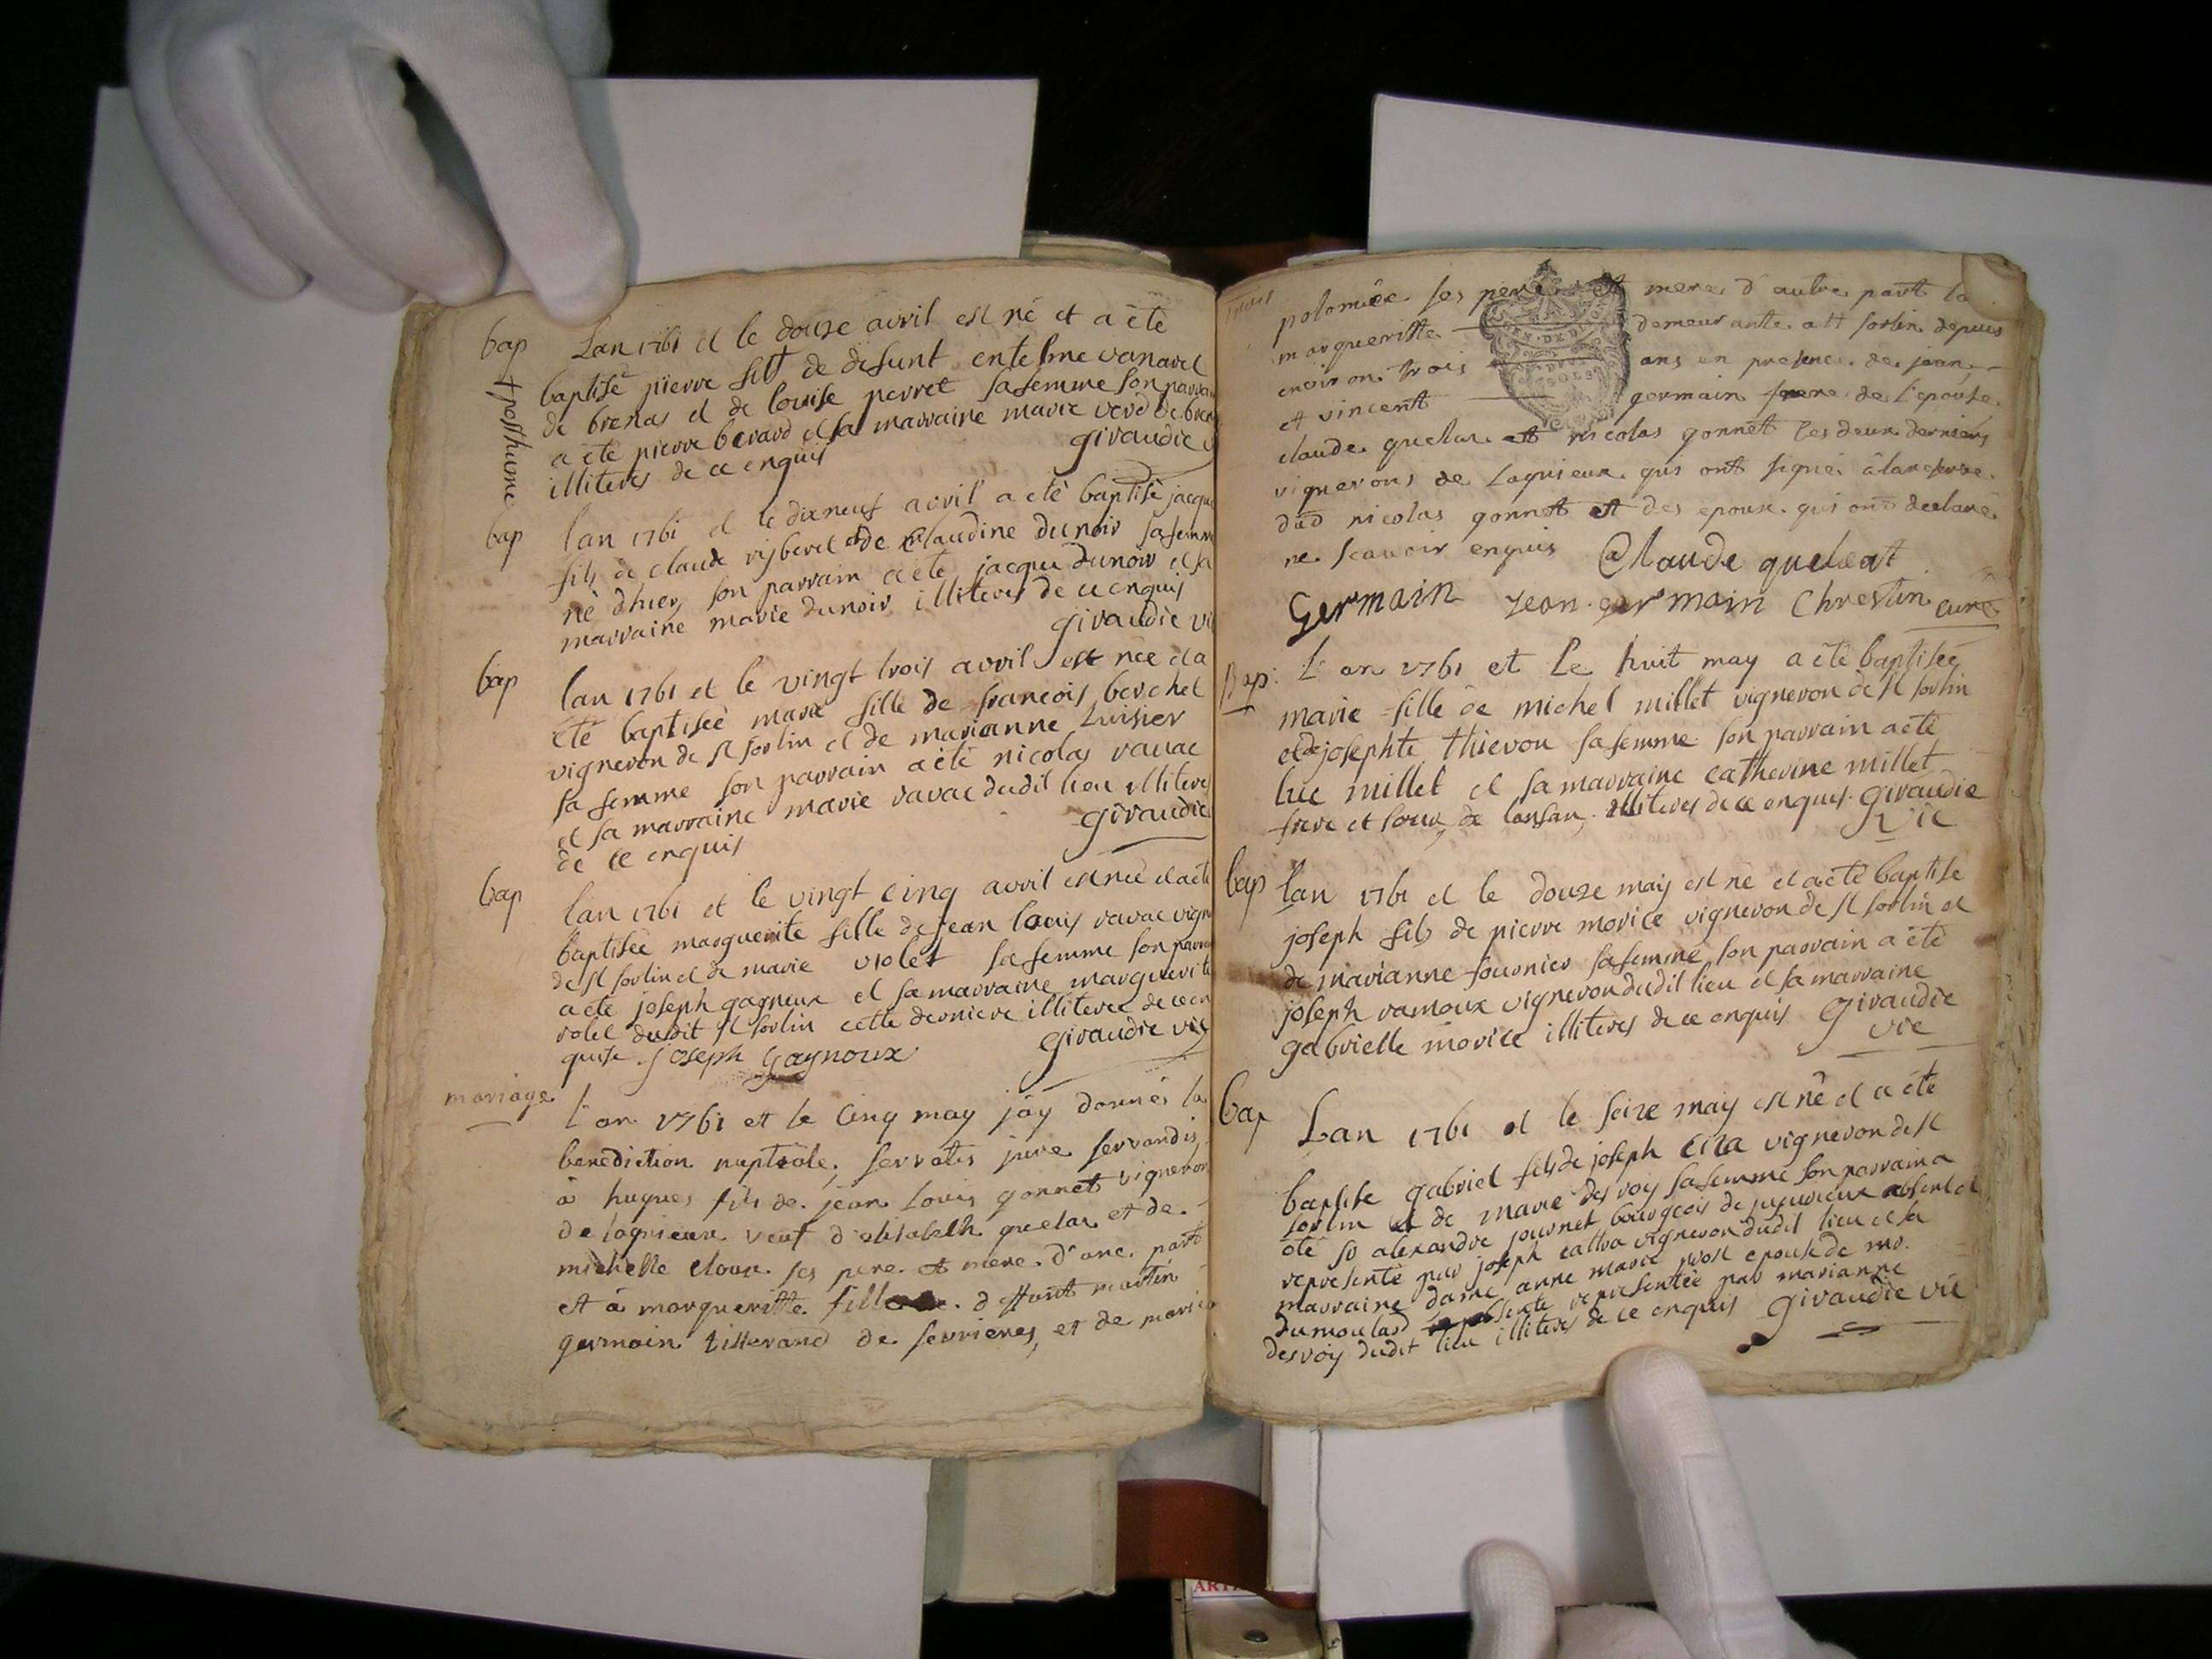 bap
Lan 1761 et le douze avril est né et a été
baptisé pierre fils de defunt entelme vanarel
+ posthume
de brenas et de louise perret sa femme son parrai
a été pierre berard et sa marraine marie verd de bren
illiteres de ce enquis giraudie
bap
lan 1761 et le dixneuf avril a eté baptisé jacque
fils de claude et de Claudine dunoir sa femm
né dhier, son parrain a eté jacque dunoir et sa
marraine marie dunoir illiteres de ce enquis
giraudie vi
bap
lan 1761 et le vingt trois avril est née et a
été baptiseé marie fille de francois berchet
vigneron de st sorlin et de marianne Luisier
sa femme son parrain a été nicolas ravac
et sa marraine marie ravac dudit lieu illiteres
de ce enquis giraudie
bap
lan 1761 et le vingt cinq avril est née et a été
baptisée marguerite fille de jean louis ravac vign
de st sorlin et de marie violet sa femme son parra
a eté joseph gagneux et sa marraine marguerite
volet dudit st sorlin cette derniere illiteree de ce en
quise. joseph Gagnoux giraudie vic
mariage
l'an 1761 et le cinq may j'ay donnés la
benediction nuptiale, servatis jure servandis,
à hugues fils de jean louis gonnet vigneron
de lagnieux veuf d'elisabeth quelar et de
michelle cloux ses pere et mere d'une part
et à margueritte fille de deffunt martin
germain tisserand de serrieres, et de marie
polomiée ses pere et mere d'autre part la
margueritte demeurante a st sorlin depuis
environ trois ans en presence de jean
et vincent germain frere de l'epouse
claude quelar et nicolas gonnet les deux derniers
vignerons de Lagnieux qui ont signé à la reserve
dud nicolas gonnet et des epoux qui ont declaré
ne scavoir enquis Claude queleat
Germain Jean germain Chrestin curé
Bap:
L'an 1761 et le huit may a été baptisée
marie fille de michel millet vigneron de st sorlin
et de josephte thievon sa femme son parrain a été
luc millet et sa marraine catherine millet
frere et soeur de illiteres de ce enquis. giraudie
vic
bap
lan 1761 et le douze may est né et a été baptisé
joseph fils de pierre morice vigneron de st sorlin et
de marianne fournier sa femme son parrain a été
joseph ramoux vigneron dudit lieu et sa marraine
gabrielle morice illiteres de ce enquis giraudie
vic
bap
Lan 1761 et le seize may est né et a été
baptisé gabriel fils de joseph vigneron de st
sorlin et de marie desvoy sa femme son parrain a
été sr alexandre journet bourgeois de jujurieux absent et
representé par joseph vigneron dudit lieu et sa
marraine dame anne marie prost epouse de mr.
dumoulard absente representée par marianne
desvoy dudit lieu illiteres de ce enquis giraudie vic